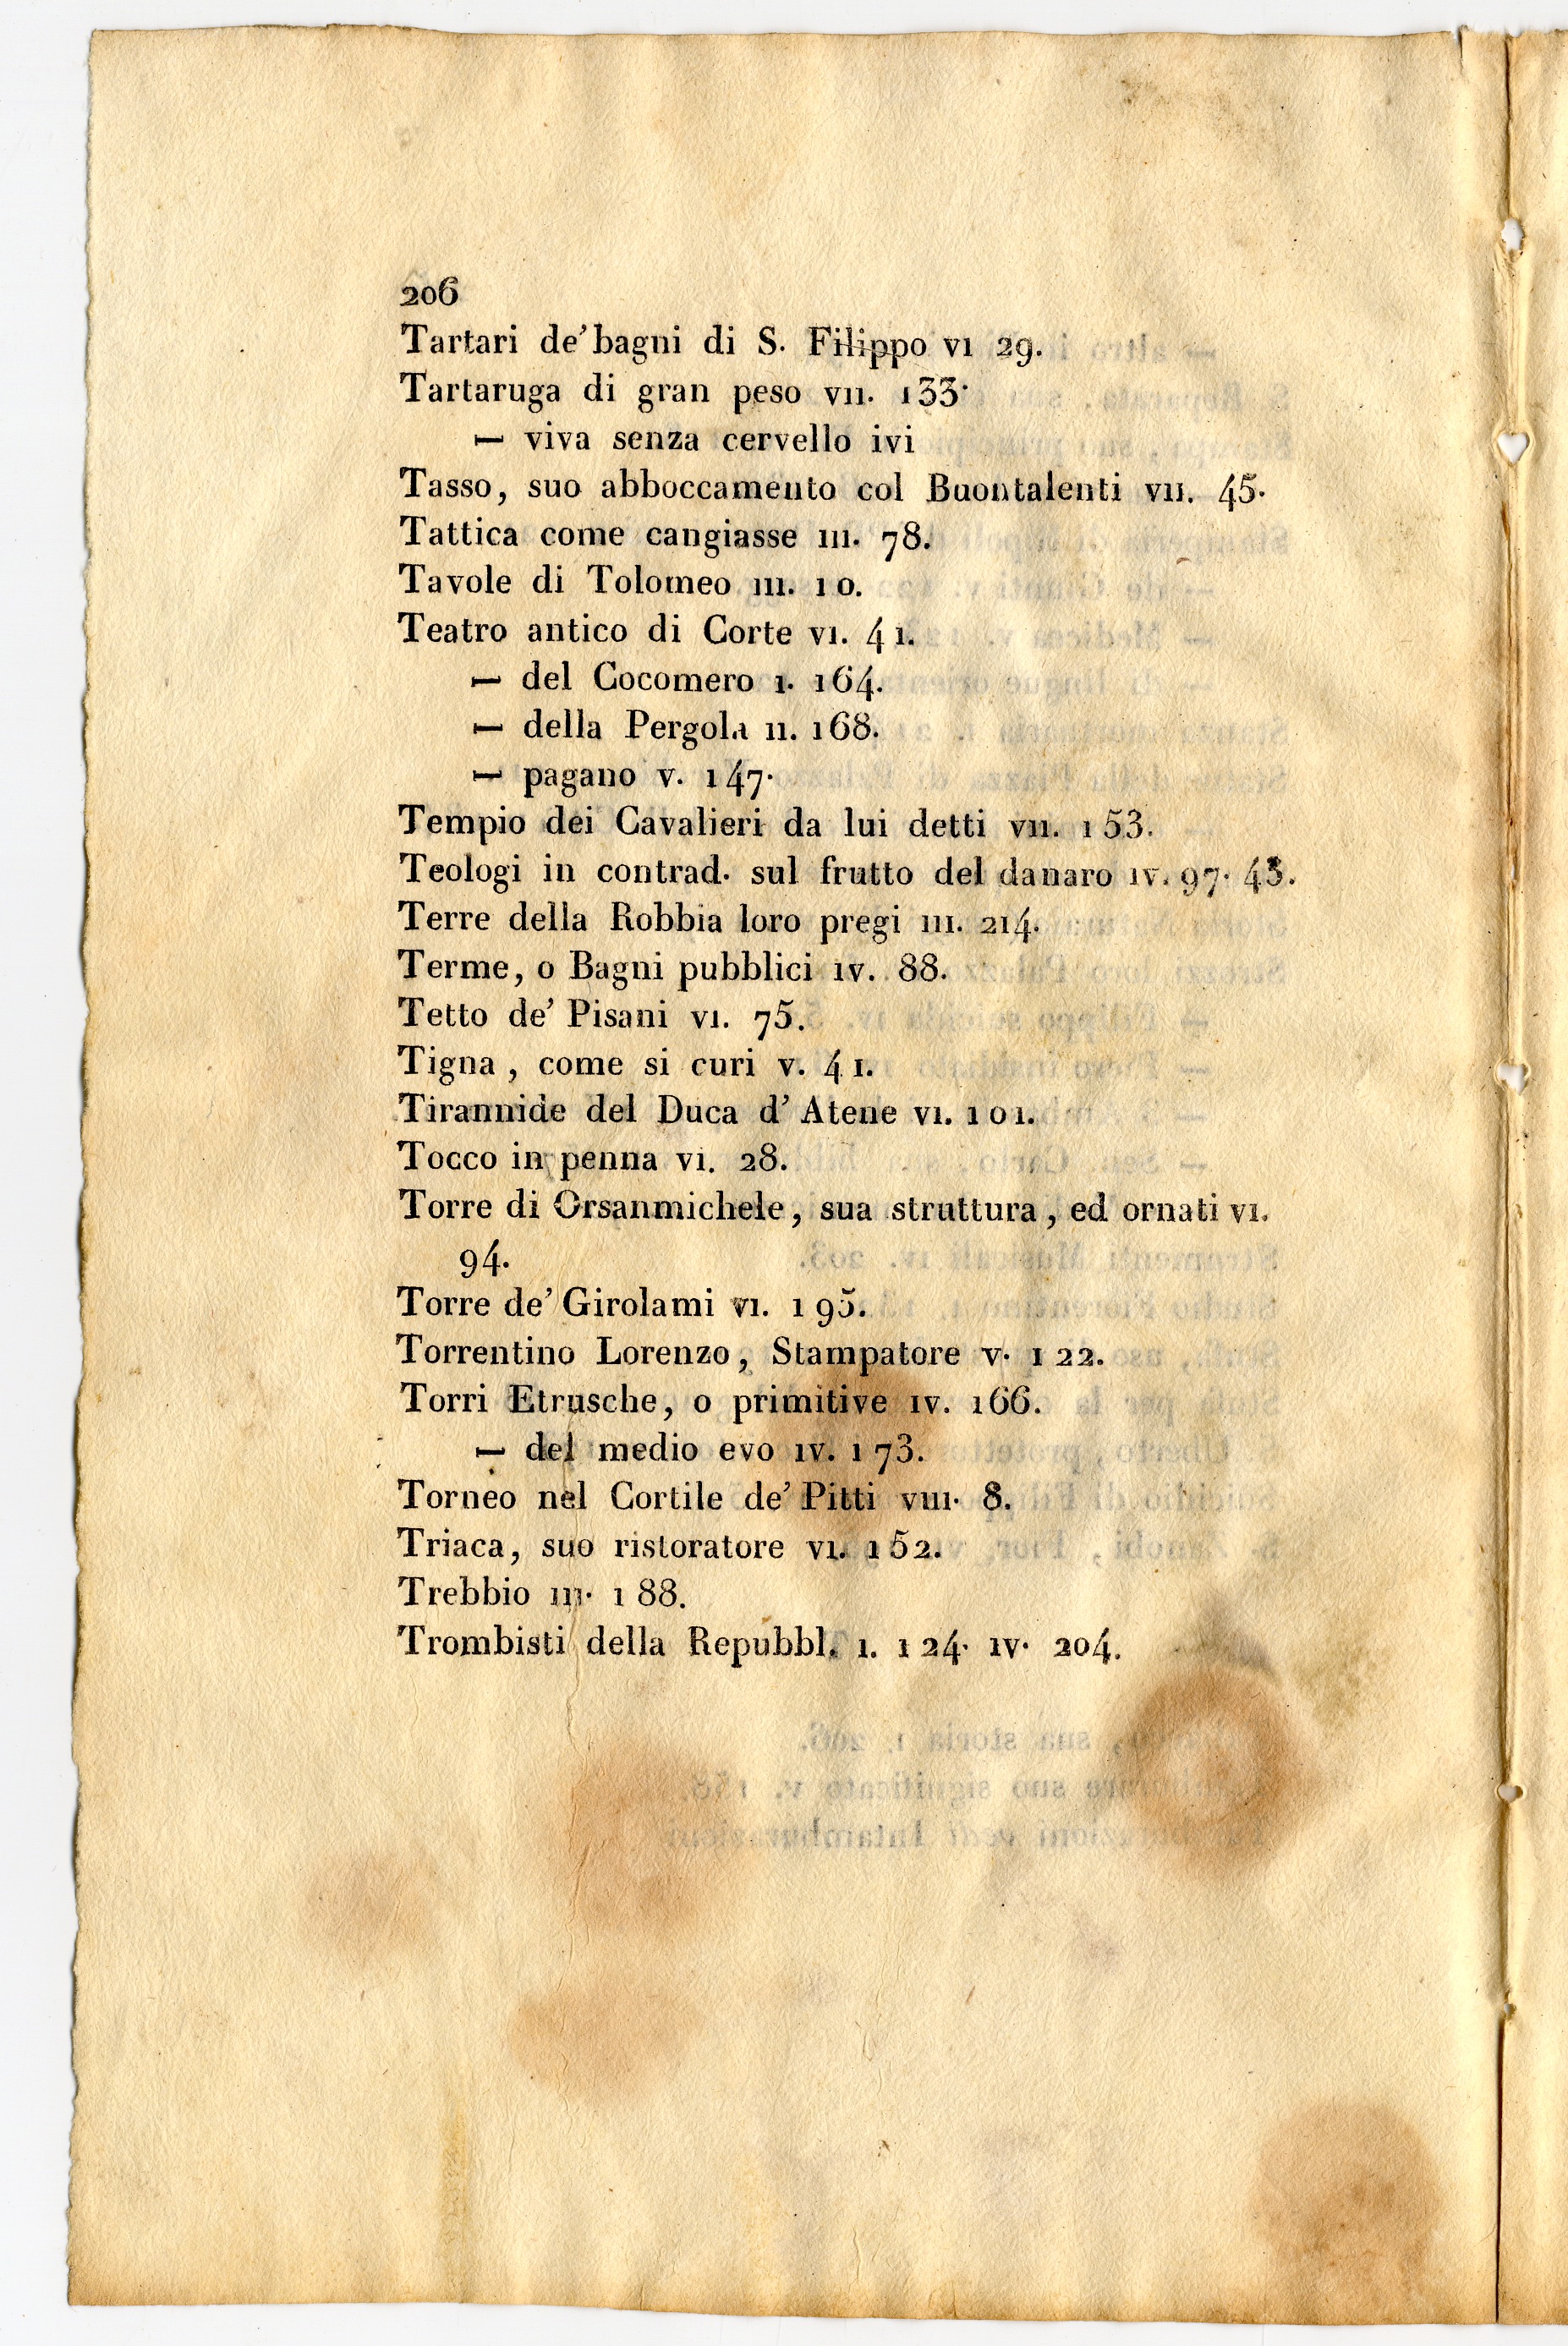 206
Tartari de' bagni di S. Filippo VI 29.
Tartaruga di gran peso VII. 133.
— viva senza cervello ivi
Tasso, suo abboccamento col Buontalenti VII. 45.
Tattica come cangiasse III. 78.
Tavole di Tolomeo III. 10.
Teatro antico di Corte VI. 41.
— del Cocomero I. 164.
— della Pergola II. 168.
— pagano V. 147.
Tempio dei Cavalieri da lui detti VII. 153.
Teologi in contrad. sul frutto del danaro IV. 97. 43.
Terre della Robbia loro pregi III. 214.
Terme, o Bagni pubblici IV. 88.
Tetto de' Pisani VI. 75.
Tigna, come si curi V. 41.
Tirannide del Duca d' Atene VI. 101.
Tocco in penna VI. 28.
Torre di Orsanmichele, sua struttura, ed ornati VI.
94.
Torre de' Girolami VI. 195.
Torrentino Lorenzo, Stampatore V. 122.
Torri Etrusche, o primitive IV. 166.
— del medio evo IV. 173.
Torneo nel Cortile de' Pitti VIII. 8.
Triaca, suo ristoratore VI. 152.
Trebbio III. 188.
Trombisti della Repubbl. I. 124. IV. 204.